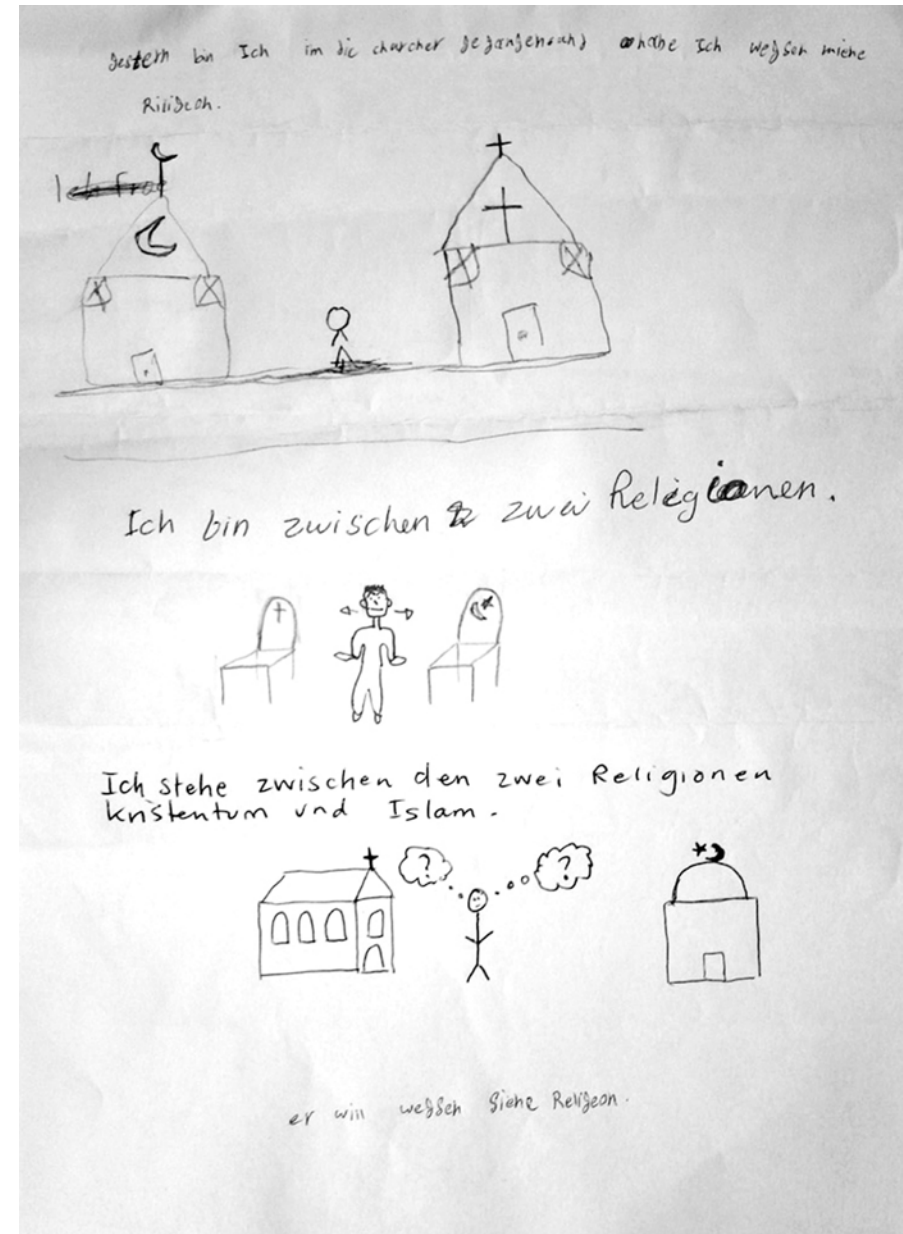 gestern bin Ich im die charcher gegangen und habe Ich wegsen miene
Riligeon.
Ich frae
Ich bin zwischen zwei Religionen.
?
?
Ich stehe zwischen den zwei Religionen
Kristentum und Islam.
er will wegsen siene Religeon.